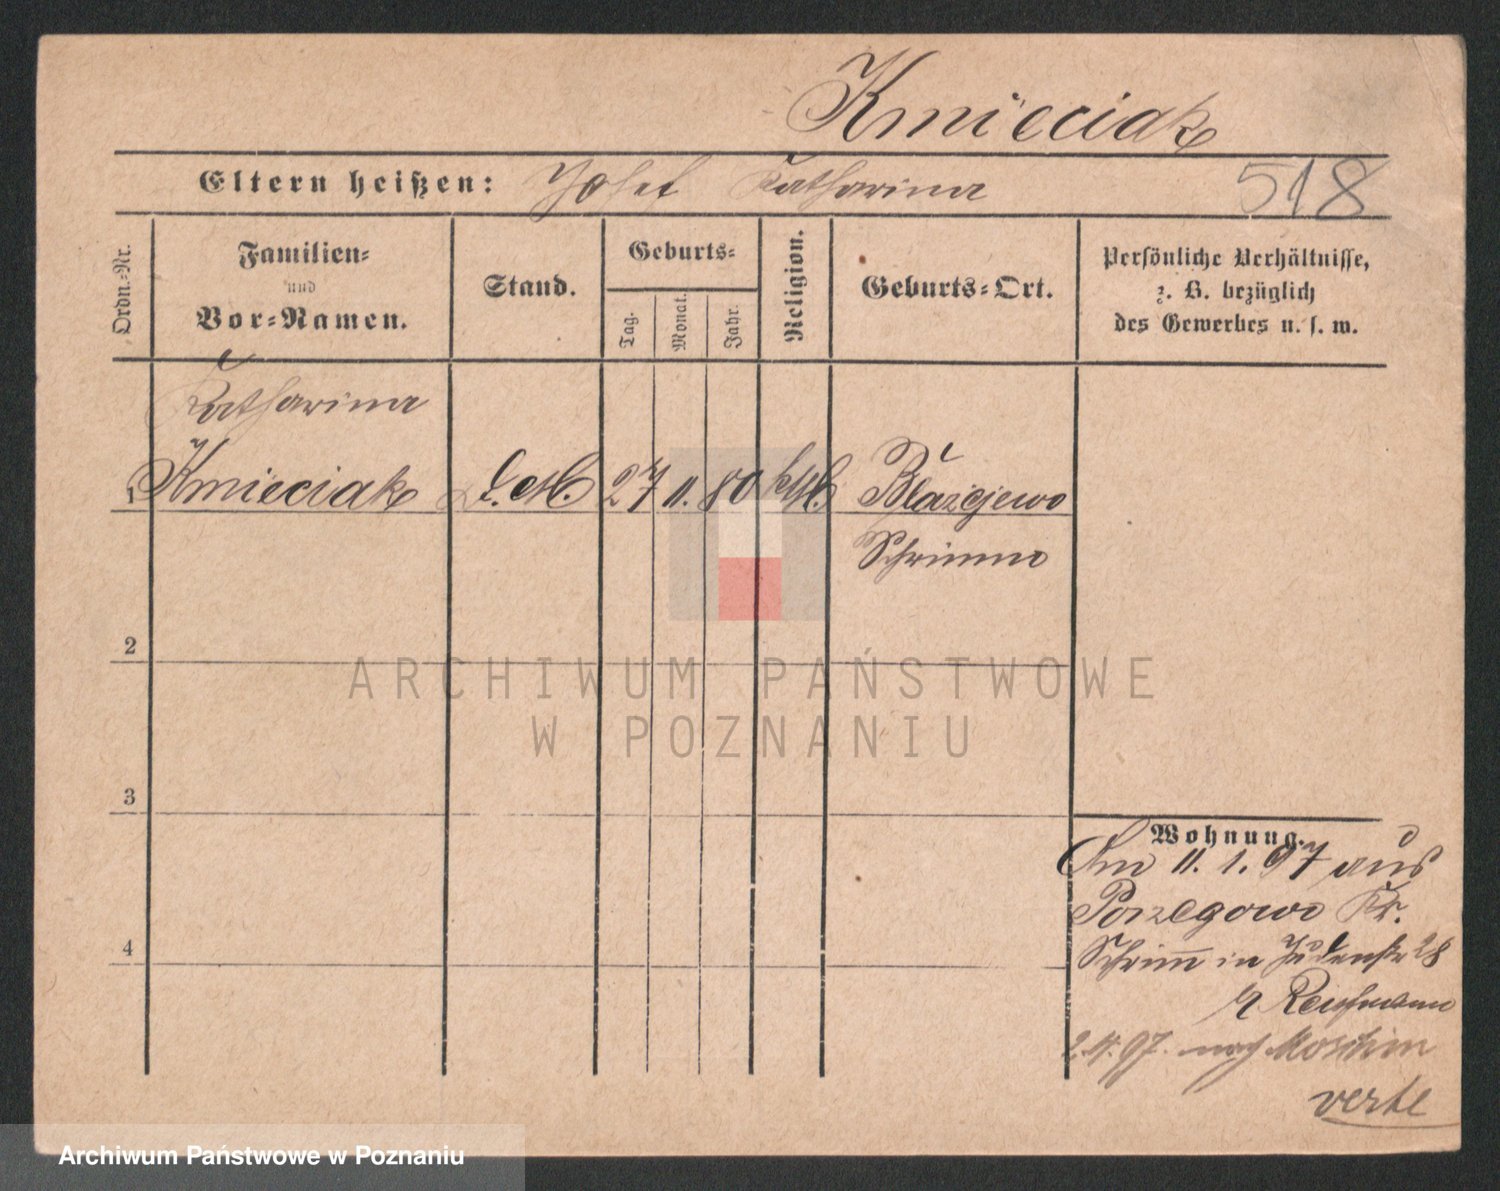 Kmieciak
Eltern heißen: Josef Katharina 518
Ordn.-Nr.
Familien-
und
Vor-Namen.
Stand.
Geburts-
Tag.
Monat.
Jahr.
Religion.
Geburts-Ort.
Persönliche Verhältnisse,
z. B. bezüglich
des Gewerbes u. s. w.
Katharina
1 Kmieciak 27 11. 80 kth. Błażejewo
Schrimm
2
3
4
Wohnung.
Am 11. 1. 97 aus
Porzegowo Kr.
Schrim in Judenstr 28
2.4.97. nach Moschin
verte
ARCHIWUM PAŃSTWOWE
W POZNANIU
Archiwum Państwowe w Poznaniu